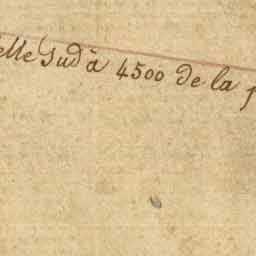 elle Sud à 4500 de la